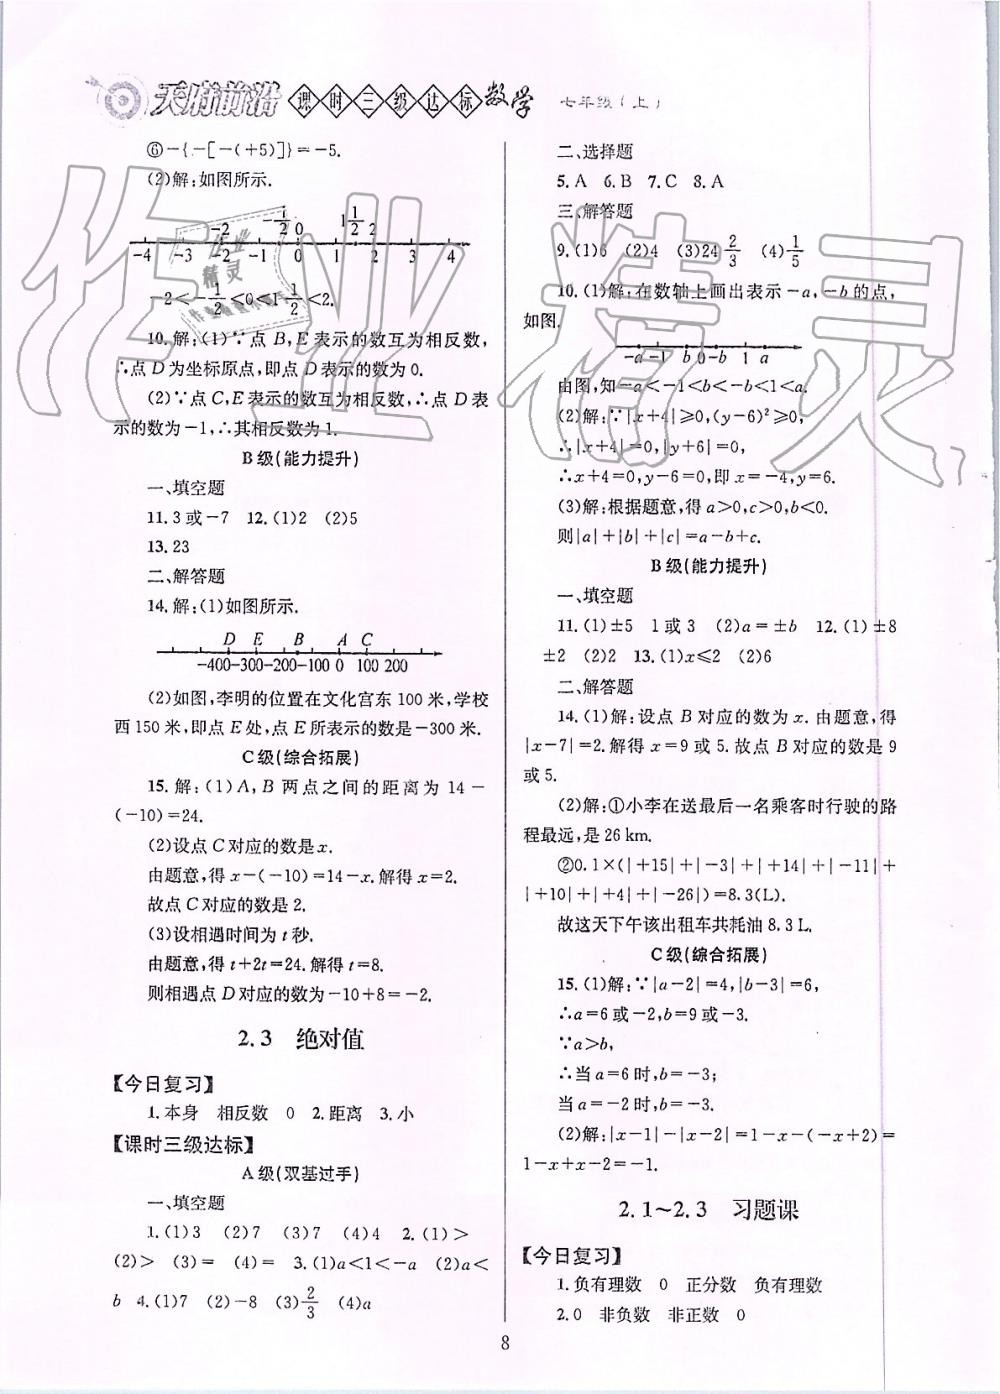 天府前沿 课时三级达标 数学 七年级(上)
⑥-{-[-(+5)]}=-5.
(2)解:如图所示.
-2 -1/2 0 1 1/2 2
-4 -3 -2 -1 0 1 2 3 4
-2<-1/2<0<1 1/2<2.
10.解:(1)∵点B,E表示的数互为相反数,
∴点D为坐标原点,即点D表示的数为0.
(2)∵点C,E表示的数互为相反数,∴点D表
示的数为-1,∴其相反数为1.
B级(能力提升)
一、填空题
11.3或-7 12.(1)2 (2)5
13.23
二、解答题
14.解:(1)如图所示.
D E B A C
-400-300-200-100 0 100 200
(2)如图,李明的位置在文化宫东100米,学校
西150米,即点E处,点E所表示的数是-300米.
C级(综合拓展)
15.解:(1)A,B两点之间的距离为14-
(-10)=24.
(2)设点C对应的数是x.
由题意,得x-(-10)=14-x.解得x=2.
故点C对应的数是2.
(3)设相遇时间为t秒.
由题意,得t+2t=24.解得t=8.
则相遇点D对应的数为-10+8=-2.
2.3 绝对值
【今日复习】
1.本身 相反数 0 2.距离 3.小
【课时三级达标】
A级(双基过手)
一、填空题
1.(1)3 (2)7 (3)7 (4)4 2.(1)>
(2)> (3)= (4)= 3.(1)a<1<-a (2)a<
b 4.(1)7 (2)-8 (3)2/3 (4)a
二、选择题
5.A 6.B 7.C 8.A
三、解答题
9.(1)6 (2)4 (3)24 2/3 (4)1/5
10.(1)解:在数轴上画出表示-a,-b的点,
如图.
-a -1 b 0 -b 1 a
由图,知-a<-1<b<-b<1<a.
(2)解:∵|x+4|≥0,(y-6)²≥0,
∴|x+4|=0,|y+6|=0,
∴x+4=0,y-6=0,即x=-4,y=6.
(3)解:根据题意,得a>0,c>0,b<0.
则|a|+|b|+|c|=a-b+c.
B级(能力提升)
一、填空题
11.(1)±5 1或3 (2)a=±b 12.(1)±8
±2 (2)2 13.(1)x≤2 (2)6
二、解答题
14.(1)解:设点B对应的数为x.由题意,得
|x-7|=2.解得x=9或5.故点B对应的数是9
或5.
(2)解:①小李在送最后一名乘客时行驶的路
程最远,是26 km.
②0.1×(|+15|+|-3|+|+14|+|-11|+
|+10|+|+4|+|-26|)=8.3(L).
故这天下午该出租车共耗油8.3 L.
C级(综合拓展)
15.(1)解:∵|a-2|=4,|b-3|=6,
∴a=6或-2,b=9或-3.
∵a>b,
∴当a=6时,b=-3;
当a=-2时,b=-3.
(2)解:|x-1|-|x-2|=1-x-(-x+2)=
1-x+x-2=-1.
2.1~2.3 习题课
【今日复习】
1.负有理数 0 正分数 负有理数
2.0 非负数 非正数 0
8
作业精灵
作业精灵